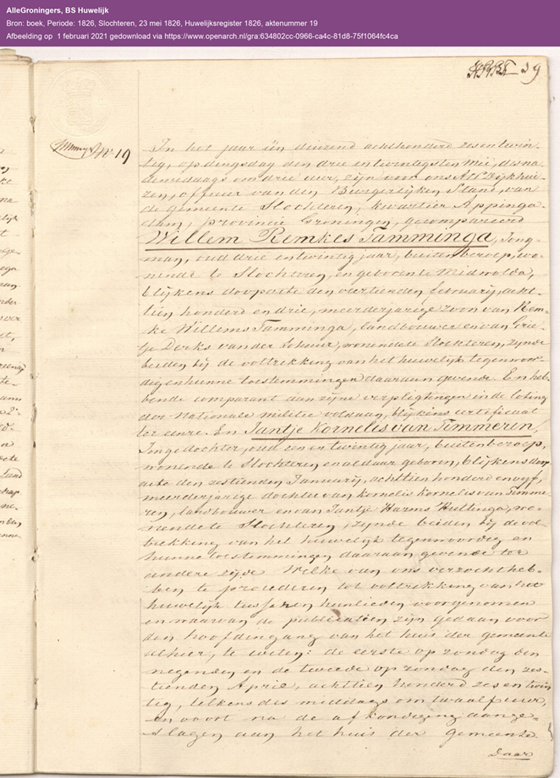 AlleGroningers, BS Huwelijk
Bron: boek, Periode: 1826, Slochteren, 23 mei 1826, Huwelijksregister 1826, aktenummer 19
Afbeelding op 1 februari 2021 gedownload via https://www.openarch.nl/gra:634802cc-0966-ca4c-81d8-75f1064fc4ca
39
No 19
In het jaar één duizend achthonderd zesentwin
tig, op dingsdag den drie entwintigsten Mei, des na
demiddags om drie uur, zijn voor ons
zen, officier van den Burgerlijken Stand, van
de gemeente Slochteren, kwartier Appinga
dam, provincie Groningen, gecompareerd
Willem Remkes Tamminga, Jong-
man, oud drie entwintig jaar, buiten beroep, wo
nende te Slochteren, en geboren te Midwolda,
blijkens doopacte den veertienden februarij, acht-
tien honderd en drie, meerderjarige zoon van Rem-
ke Willems Tamminga, landbouwer en van Grie-
tje Derks van der Scheer, wonende te Slochteren, zijnde
beiden bij de voltrekking van het huwelijk tegenwoor-
dig en hunne toestemmingen daaraan gevende. En heb
bende comparant aan zijne verpligtingen in de loting
der Nationale militie voldaan, blijkens certificaat
ter eenre. En Jantje Korneles van Timmeren,
Jonge dochter, oud een en twintig jaar, buiten beroep,
wonende te Slochteren en aldaar geboren, blijkens doop
acte den zestienden Januarij, achttien honderd en vijf,
meerderjarige dochter van Kornelis Kornelis van Timme
ren, landbouwer en van Jantje Harms Hullinga, wo-
nende te Slochteren, zijnde beiden bij de vol
trekking van het huwelijk tegenwoordig en
hunne toestemmingen daaraan gevende ter
andere zijde. Welke van ons verzocht heb-
ben te procederen tot voltrekking van het
huwelijk tusschen hunlieden voorgenomen
en waarvan de publicatien zijn gedaan voor
den hoofdengang van het huis der gemeente
alhier, te weten: de eerste op zondag den
negenden en de tweede op zondag den zes-
tienden April, achttien honderd zes en twin
tig, telkens des middags om twaalf uur,
en voort na de afkondiging aange-
slagen aan het huis der gemeente.
Daar